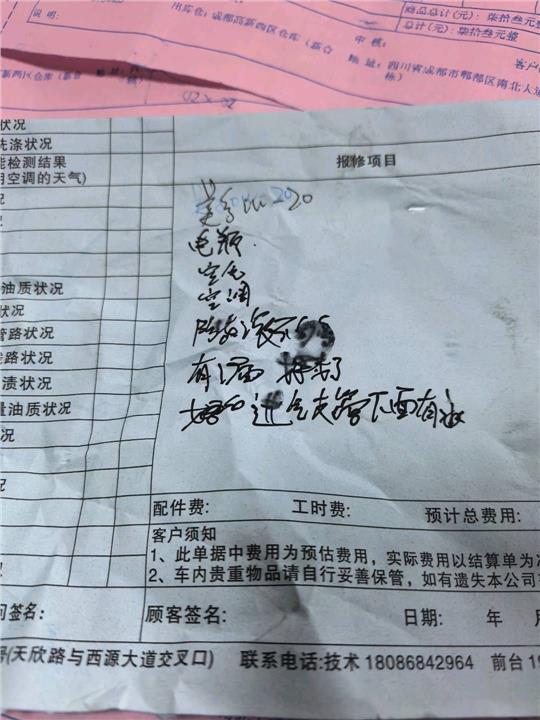 商品总计(元): 柒拾叁元整
总计(元): 柒拾叁元整
说明:
出库仓: 成都高新西区仓库(新合
审核:
客户
地址: 四川省成都市郫都区南北大道
栋)
新西区仓库(新合
地址:
状况
洗涤状况
能检测结果
用空调的天气)
况
报修项目
电瓶
空气
空调
有漏
进气支管下面有油
油质状况
状况
管路状况
线路状况
渍状况
量油质状况
况
配件费: 工时费: 预计总费用:
客户须知
1、此单据中费用为预估费用, 实际费用以结算单为准
2、车内贵重物品请自行妥善保管, 如有遗失本公司
问签名: 顾客签名: 日期: 年 月
号(天欣路与西源大道交叉口) 联系电话:技术 18086842964 前台